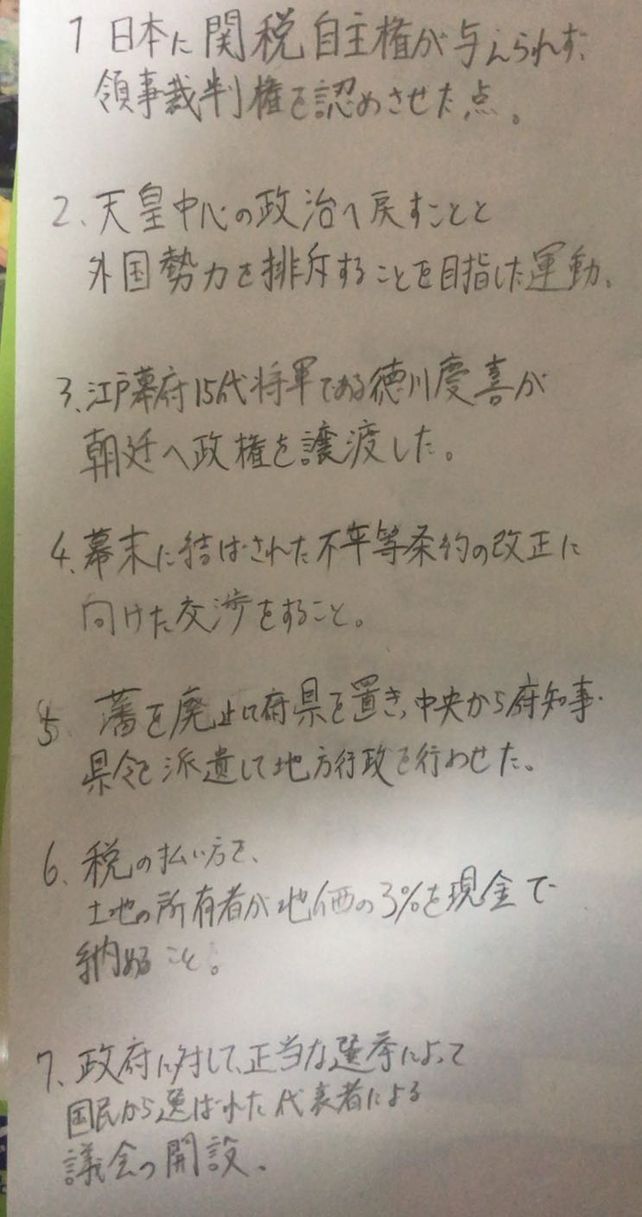 1 日本に関税自主権が与えられず、
領事裁判権を認めさせた点。
2、天皇中心の政治へ戻すことと
外国勢力を排斥することを目指した運動、
3、江戸幕府15代将軍である徳川慶喜が
朝廷へ政権を譲渡した。
4、幕末に結ばされた不平等条約の改正に
向けた交渉をすること。
5、藩を廃止し府県を置き、中央から府知事・
県令を派遣して地方行政を行わせた。
6、税の払い方を、
土地の所有者が地価の3%を現金で
納めること。
7、政府に対して、正当な選挙によって
国民から選ばれた代表者による
議会の開設、